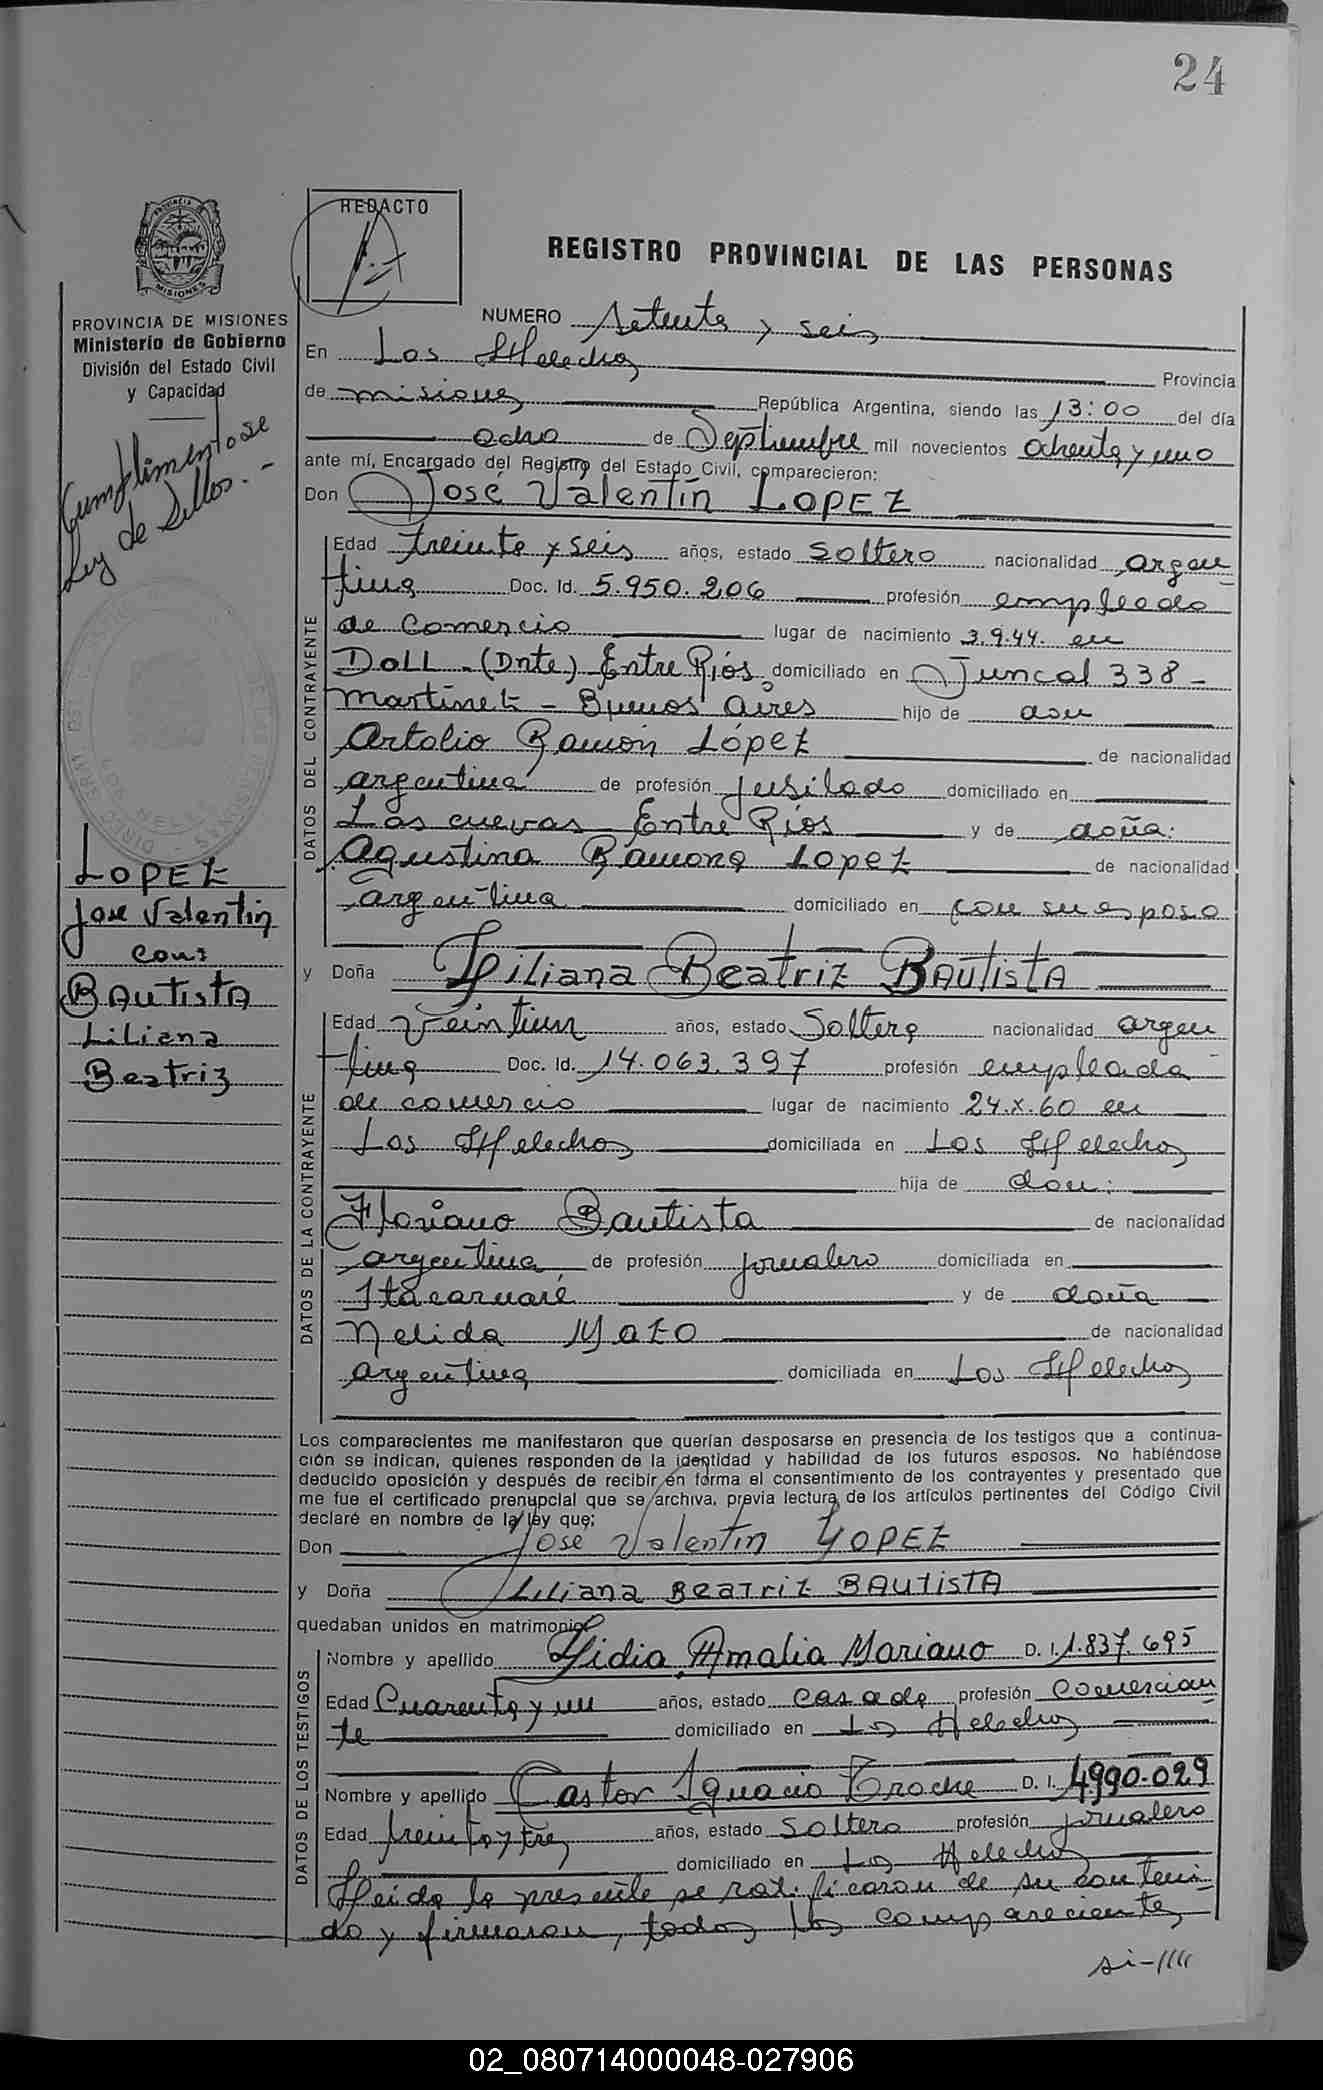 24
REDACTO
REGISTRO PROVINCIAL DE LAS PERSONAS
PROVINCIA DE MISIONES
Ministerio de Gobierno
División del Estado Civil
y Capacidad
Cumplimentose
Ley de Sellos.-
LOPEZ
Jose Valentin
con:
BAUTISTA
Liliana
Beatriz
NUMERO Setenta y seis
En Los Helechos Provincia
de misiones República Argentina, siendo las 13:00 del día
ocho de Septiembre mil novecientos ochenta y uno
ante mí, Encargado del Registro del Estado Civil, comparecieron:
Don José Valentín LOPEZ
DATOS DEL CONTRAYENTE
Edad treinta y seis años, estado soltero nacionalidad argen
tina Doc. Id. 5.950.206 profesión empleado
de comercio lugar de nacimiento 3.9.44. en
DOLL-(Dnte) Entre Ríos domiciliado en Juncal 338-
martinez - Buenos aires hijo de don
Artolio Ramón López de nacionalidad
argentina de profesión jubilado domiciliado en
Las cuevas Entre Ríos y de doña:
Agustina Ramona Lopez de nacionalidad
argentina domiciliado en con su esposo
y Doña Liliana Beatriz BAUTISTA
DATOS DE LA CONTRAYENTE
Edad veintiun años, estado Soltera nacionalidad argen
tina Doc. Id. 14.063.397 profesión empleada
de comercio lugar de nacimiento 24.X.60 en
Los Helechos domiciliada en Los Helechos
hija de don:
Floriano Bautista de nacionalidad
argentina de profesión jornalero domiciliada en
Itacaruaré y de doña
Nelida de nacionalidad
argentina domiciliada en Los Helechos
Los comparecientes me manifestaron que querían desposarse en presencia de los testigos que a continua-
ción se indican, quienes responden de la identidad y habilidad de los futuros esposos. No habiéndose
deducido oposición y después de recibir en forma el consentimiento de los contrayentes y presentado que
me fue el certificado prenupcial que se archiva, previa lectura de los artículos pertinentes del Código Civil
declaré en nombre de la ley que:
Don José Valentín LOPEZ
y Doña LILIANA BEATRIZ BAUTISTA
quedaban unidos en matrimonio
DATOS DE LOS TESTIGOS
Nombre y apellido Lidia Amalia Mariano D. I. 1.837.695
Edad Cuarenta y un años, estado casada profesión comercian
te domiciliado en Los Helechos
Nombre y apellido Castor Ignacio Troche D. I. 4990.029
Edad treinta y tres años, estado soltero profesión jornalero
domiciliado en Los Helechos
Leida la presente se ratificaron de su conteni-
do y firmaron, todos los comparecientes
si-////
02_080714000048-027906